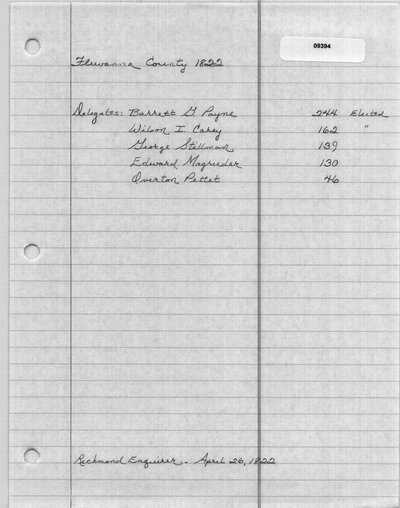 09394
Fluvanna County 1822
Delegates: Barrett G. Payne 244 Elected
Wilson I. Carey 162 "
George Stillman 139
Edward Magruder 130
Overton Pettet 46
Richmond Enquirer. April 26, 1822